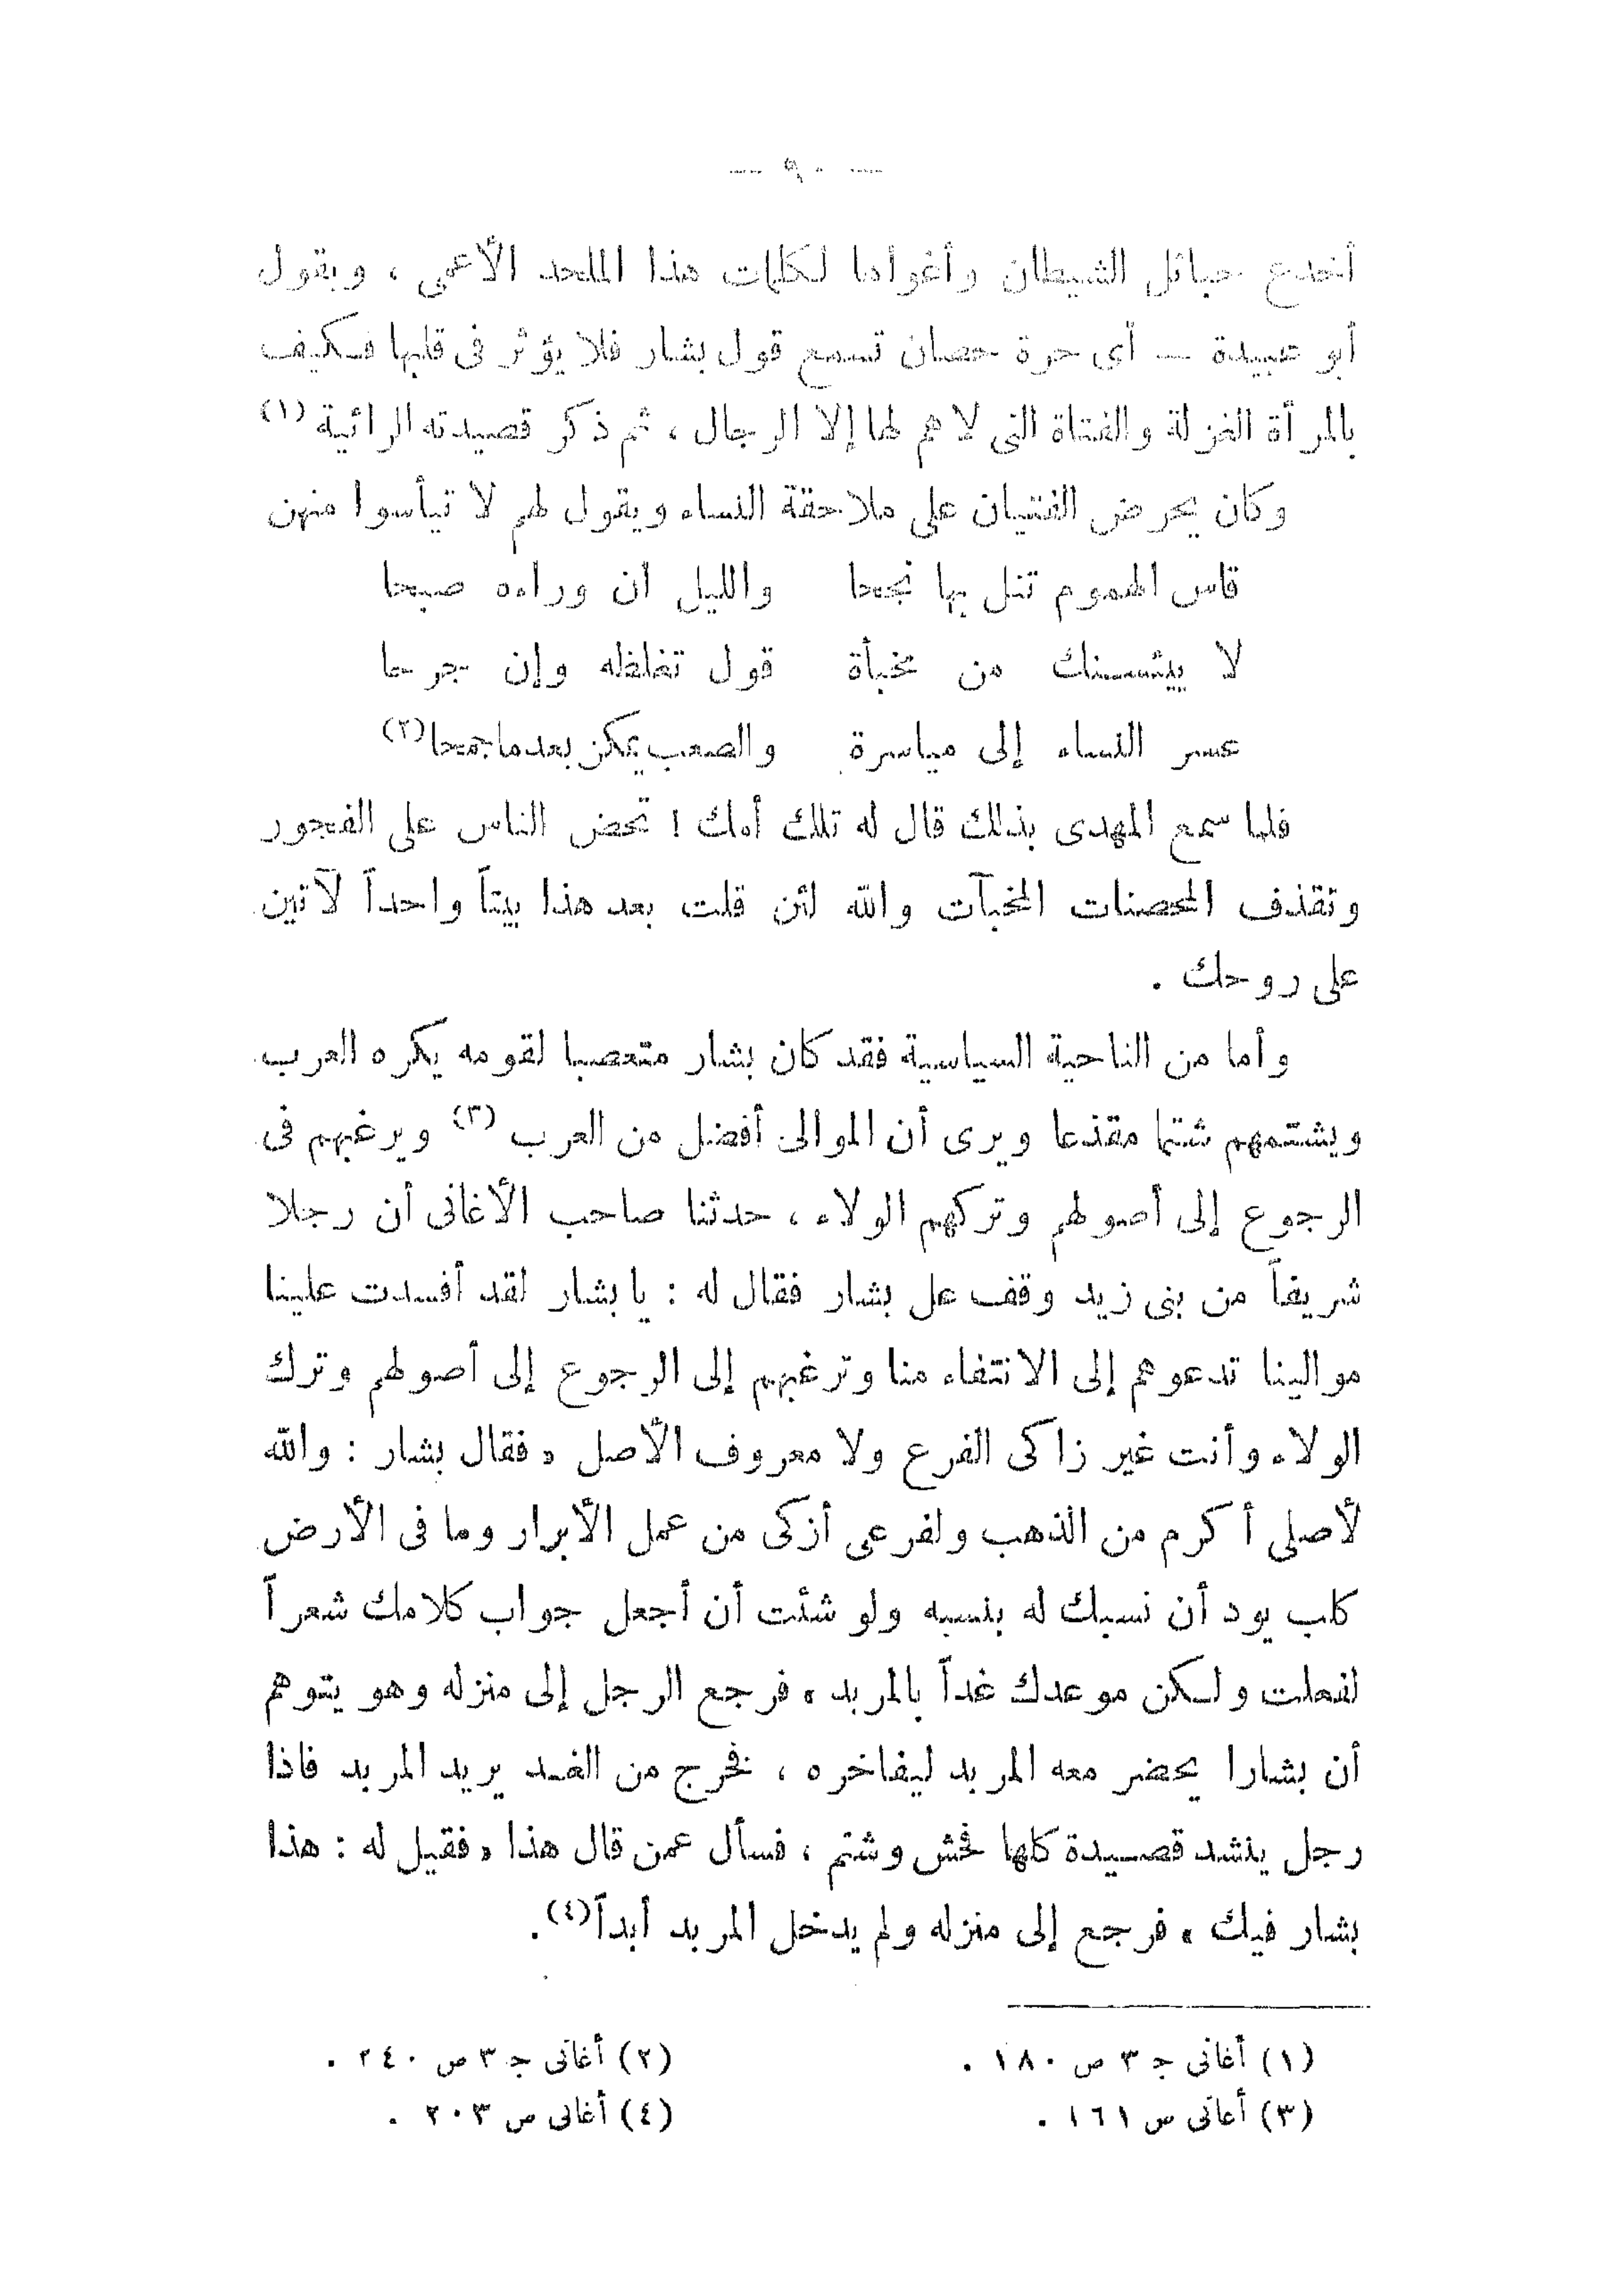 — ٩٠ —
أخدع حبائل الشيطان وأغواها لكلمات هذا الملحد الأعمى ، ويقول
أبو عبيدة — أى حرة حصان تسمع قول بشار فلا يؤثر فى قلبها فكيف
بالمرأة الغزلة والفتاة التى لا هم لها إلا الرجال ، ثم ذكر قصيدته الرائية (١)
وكان يحرض الفتيان على ملاحقة النساء ويقول لهم لا تيأسوا منهن
قاس الهموم تنل بها نجحا والليل ان وراءه صبحا
لا ييئسنك من مخبأة قول تغلظه وإن جرحا
عسر النساء إلى مياسرة والصعب يمكن بعدما جمحا (٢)
فلما سمع المهدى بذلك قال له تلك أمك ! تحض الناس على الفجور
وتقذف المحصنات المخبآت والله لئن قلت بعد هذا بيتاً واحداً لآتين
على روحك .
وأما من الناحية السياسية فقد كان بشار متعصبا لقومه يكره العرب
ويشتمهم شتما مقذعا ويرى أن الموالى أفضل من العرب (٣) ويرغبهم فى
الرجوع إلى أصولهم وتركهم الولاء ، حدثنا صاحب الأغانى أن رجلا
شريفاً من بنى زيد وقف عل بشار فقال له : يا بشار لقد أفسدت علينا
موالينا تدعوهم إلى الانتفاء منا وترغبهم إلى الرجوع إلى أصولهم وترك
الولاء وأنت غير زاكى الفرع ولا معروف الأصل ، فقال بشار : والله
لأصلى أكرم من الذهب ولفرعى أزكى من عمل الأبرار وما فى الأرض
كلب يود أن نسبك له بنسبه ولو شئت أن أجعل جواب كلامك شعراً
لفعلت ولكن موعدك غداً بالمربد ، فرجع الرجل إلى منزله وهو يتوهم
أن بشارا يحضر معه المربد ليفاخره ، فخرج من الغد يريد المربد فاذا
رجل ينشد قصيدة كلها فحش وشتم ، فسأل عمن قال هذا ، فقيل له : هذا
بشار فيك ، فرجع إلى منزله ولم يدخل المربد أبداً (٤) .
(١) أغانى ج ٣ ص ١٨٠ . (٢) أغانى ج ٣ ص ٢٤٠ .
(٣) أغانى ص ١٦١ . (٤) أغانى ص ٢٠٣ .